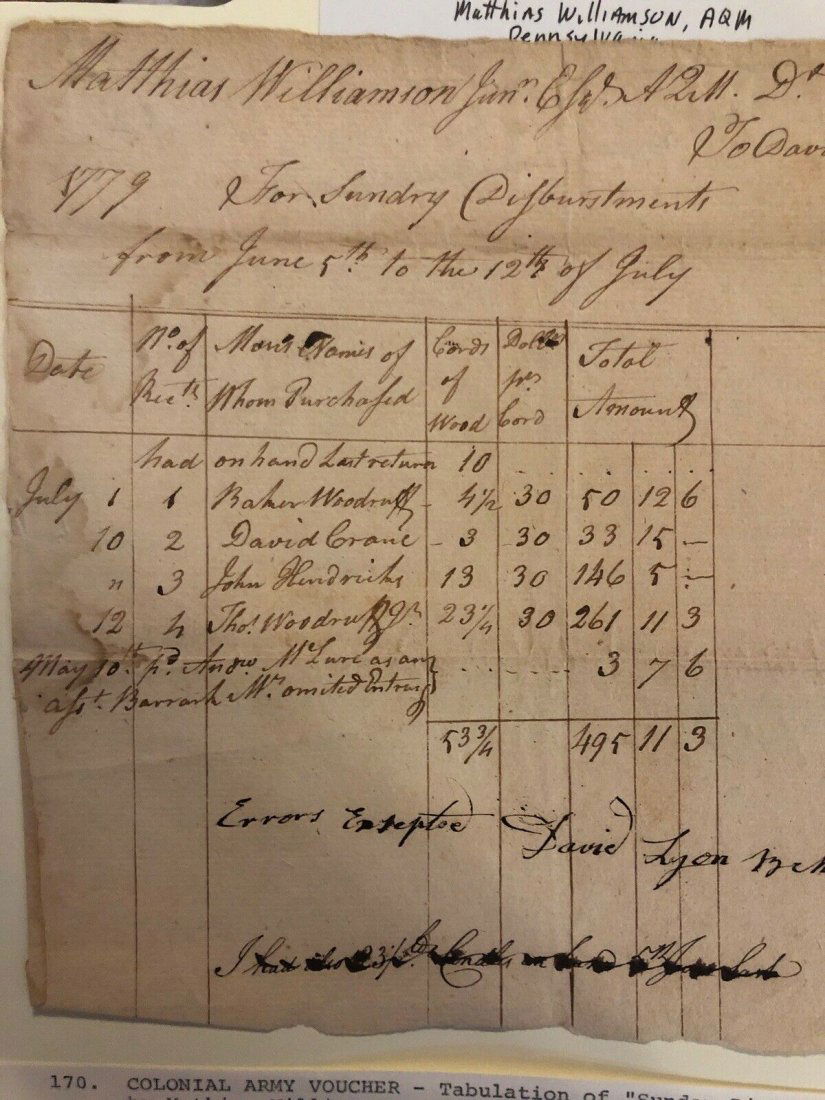 Matthias Williamson, AQM
Pennsylvania
Matthias Williamson Junr. Esqr. A.Q.M. Dr.
To Davi
1779 For Sundry Disburstments
from June 5th to the 12th of July
Date No. of Recets. Mens Names of Whom Purchased Cords of Wood Dolls pr Cord Total Amount
had on hand Last return 10
July 1 1 Baker Woodruff - 4 1/2 30 50 12 6
10 2 David Crane - 3 30 33 15 —
" 3 John Hendricks 13 30 146 5 —
12 4 Thos. Woodruff Jr 23 1/4 30 261 11 3
May 10th pd. Andw. McLure as an 3 7 6
asst. Barrack Mr. omited Entring
53 3/4 495 11 3
Errors Exseptod David Lyon B M
I had also 23 1/2 Candles on hand 5th June Last
170. COLONIAL ARMY VOUCHER - Tabulation of "Sundry